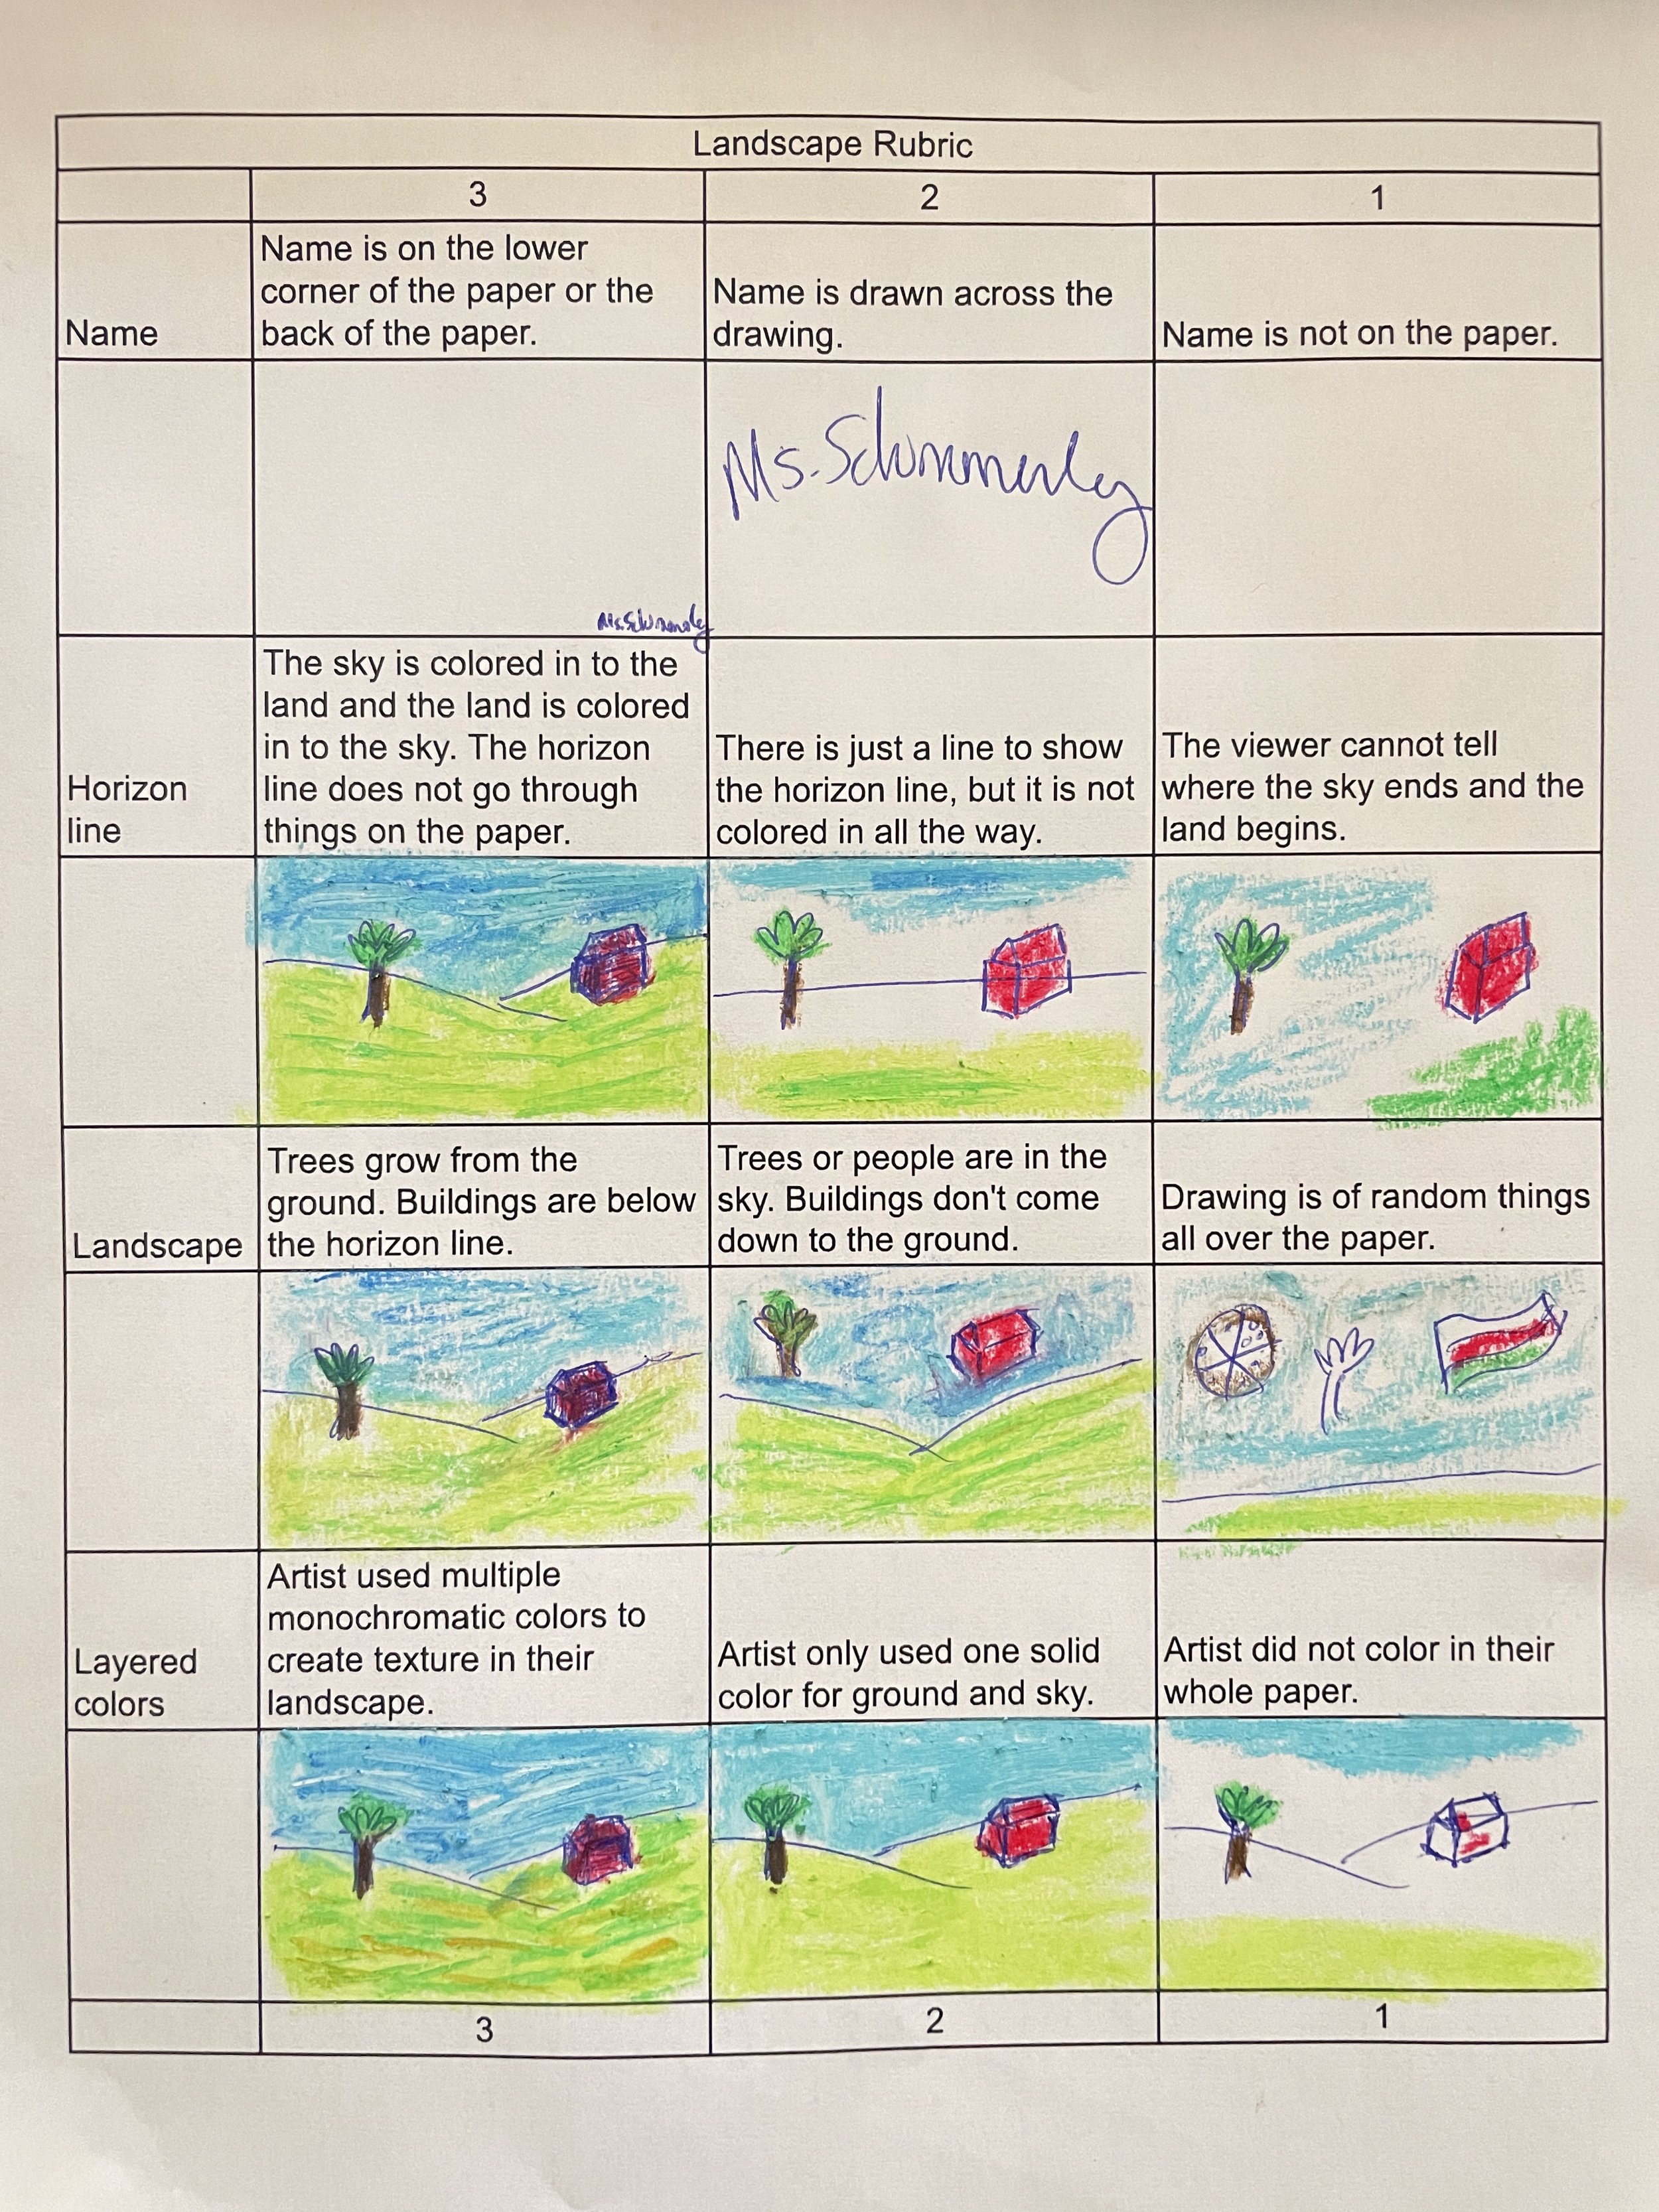 Landscape Rubric
3 2 1
Name
Name is on the lower
corner of the paper or the
back of the paper.
Name is drawn across the
drawing.
Name is not on the paper.
Ms.
Ms.
Horizon
line
The sky is colored in to the
land and the land is colored
in to the sky. The horizon
line does not go through
things on the paper.
There is just a line to show
the horizon line, but it is not
colored in all the way.
The viewer cannot tell
where the sky ends and the
land begins.
Landscape
Trees grow from the
ground. Buildings are below
the horizon line.
Trees or people are in the
sky. Buildings don't come
down to the ground.
Drawing is of random things
all over the paper.
Layered
colors
Artist used multiple
monochromatic colors to
create texture in their
landscape.
Artist only used one solid
color for ground and sky.
Artist did not color in their
whole paper.
3 2 1